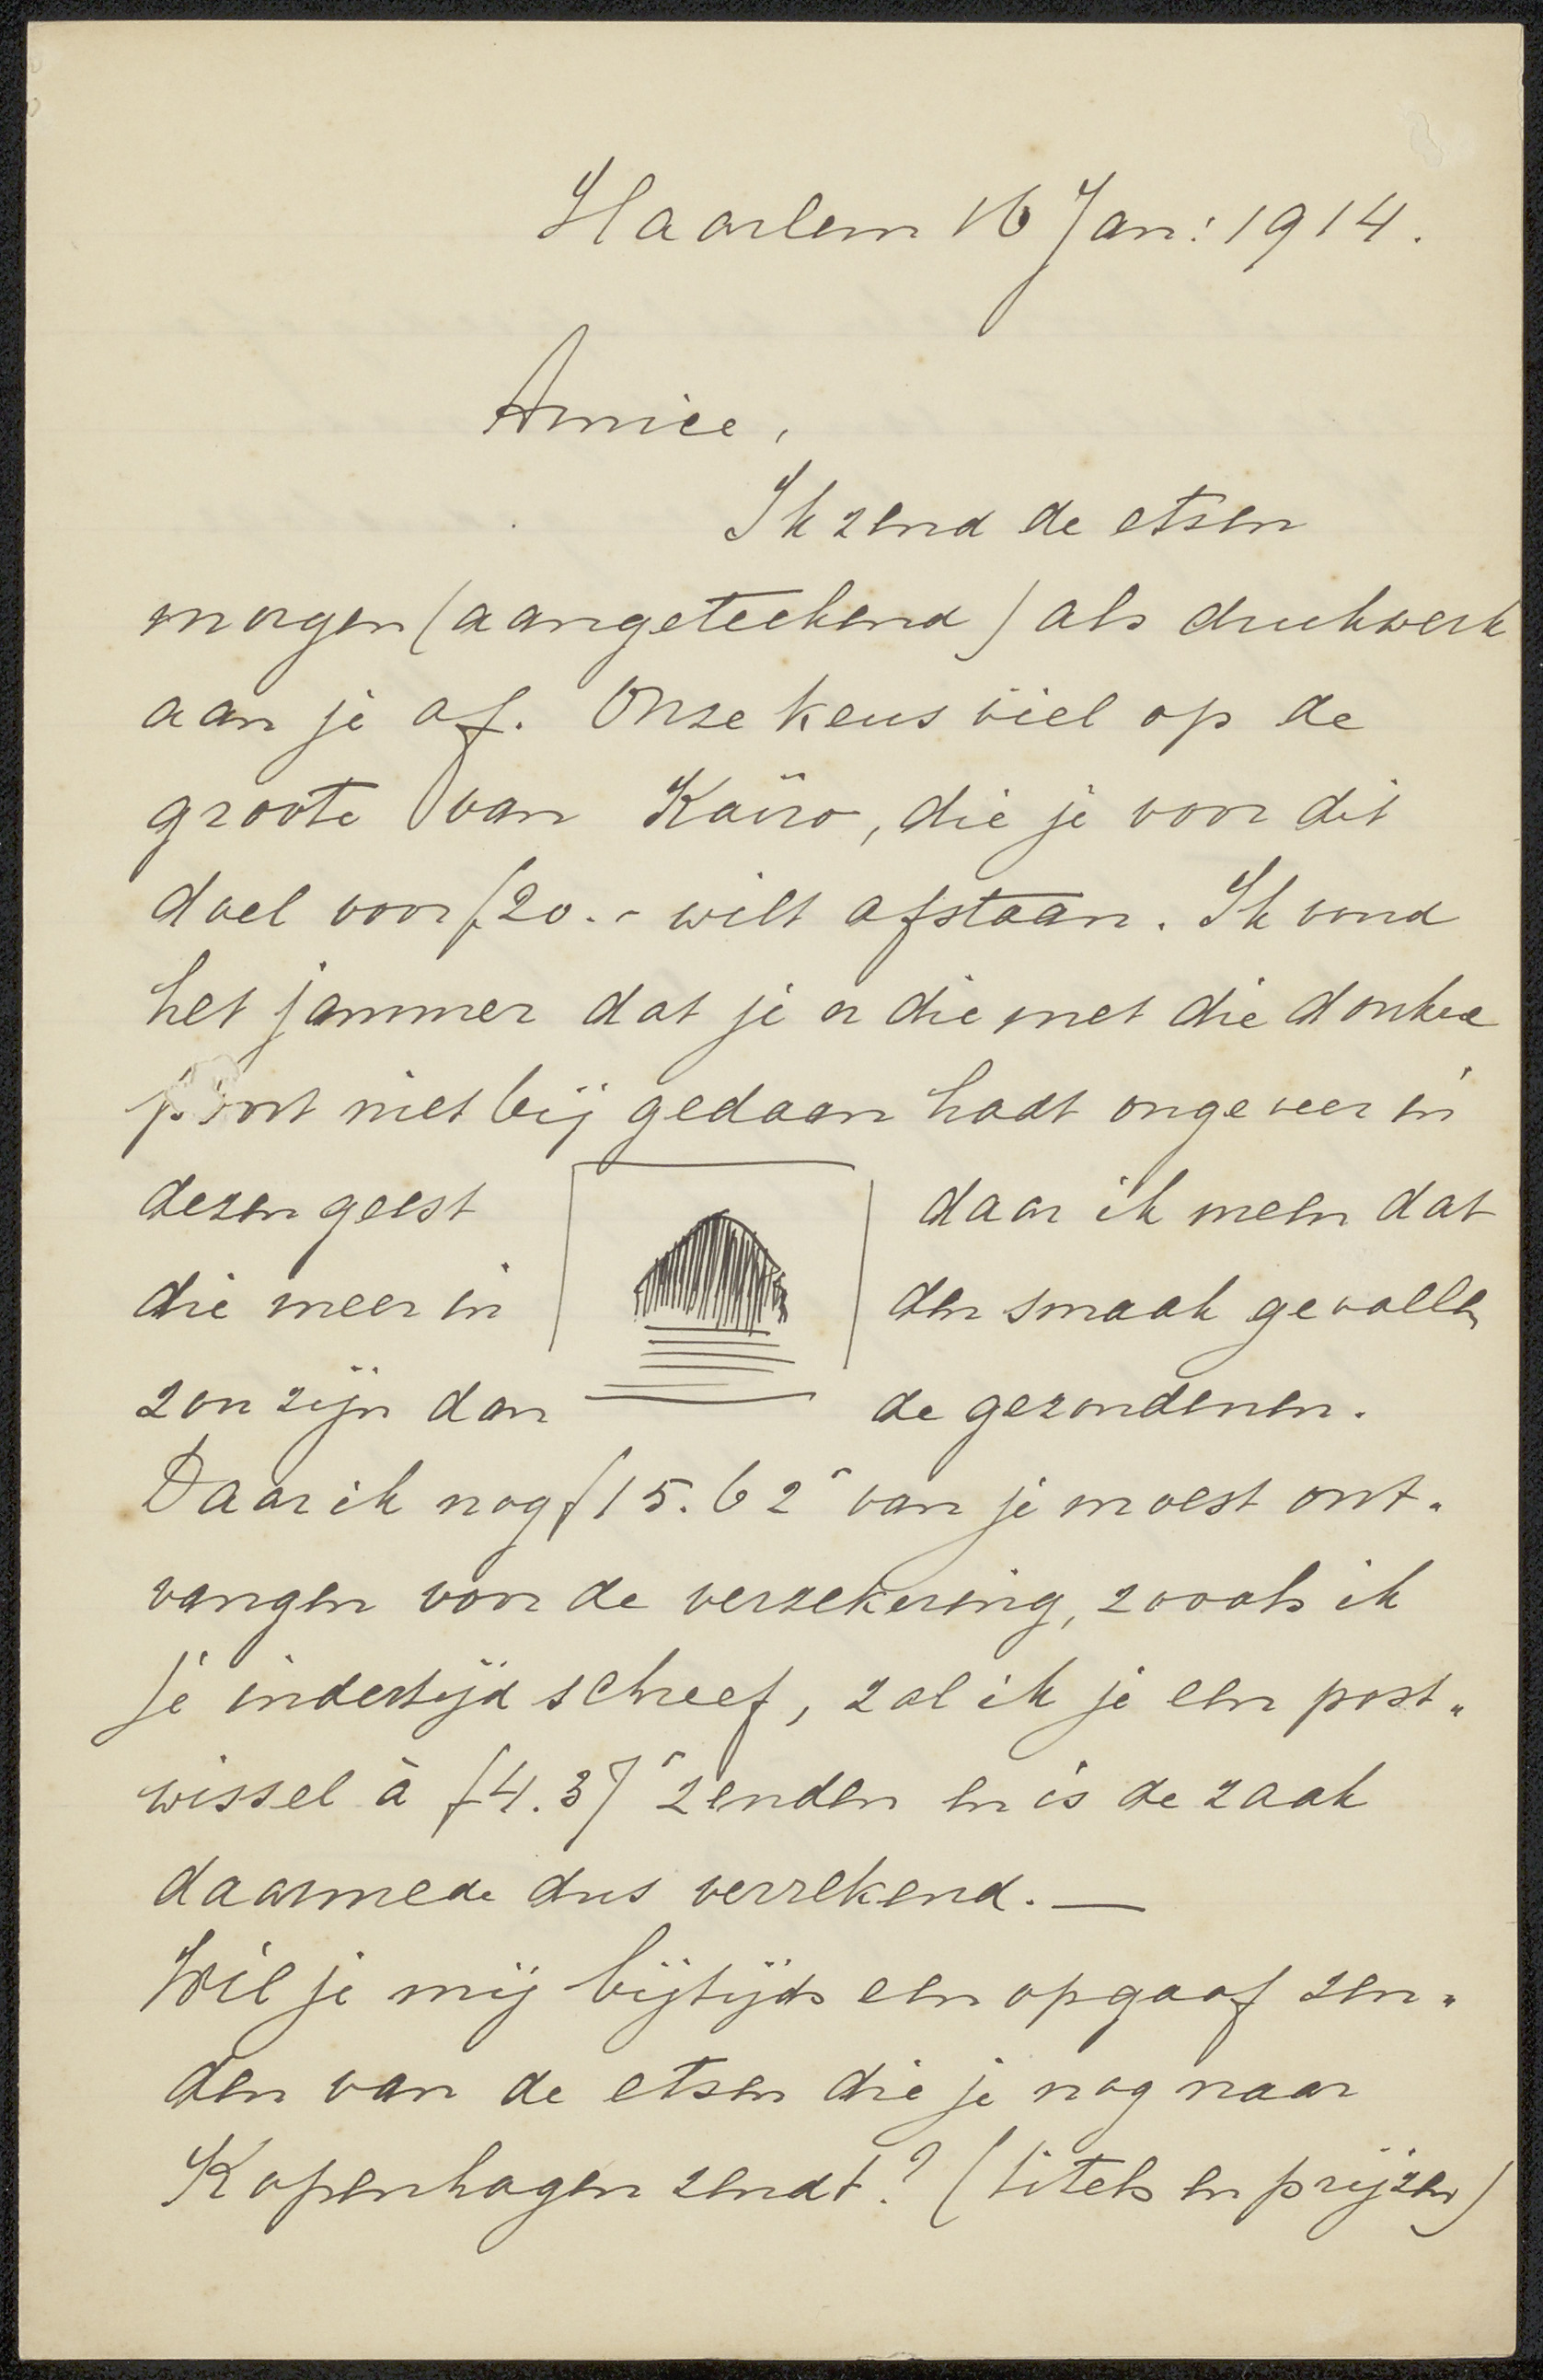 Haarlem 16 Jan: 1914.
Amice,
Ik zend de etsen
morgen (aangeteekend) als drukwerk
aan je af. Onze keus viel op de
groote van Kaïro, die je voor dit
doel voor f20.- wilt afstaan. Ik vond
het jammer dat je er die met die donkere
poort niet bij gedaan hadt ongeveer in
dezen geest daar ik meen dat
die meer in den smaak gevallen
zou zijn dan de gezondenen.
Daar ik nog f15.62⁵ van je moest ont-
vangen voor de verzekering, zooals ik
je indertijd schreef, zal ik je een post-
wissel à f4.37⁵ zenden en is de zaak
daarmede dus verrekend. —
Wil je mij bijtijds een opgaaf zen-
den van de etsen die je nog naar
Kopenhagen zendt? (titels en prijzen)